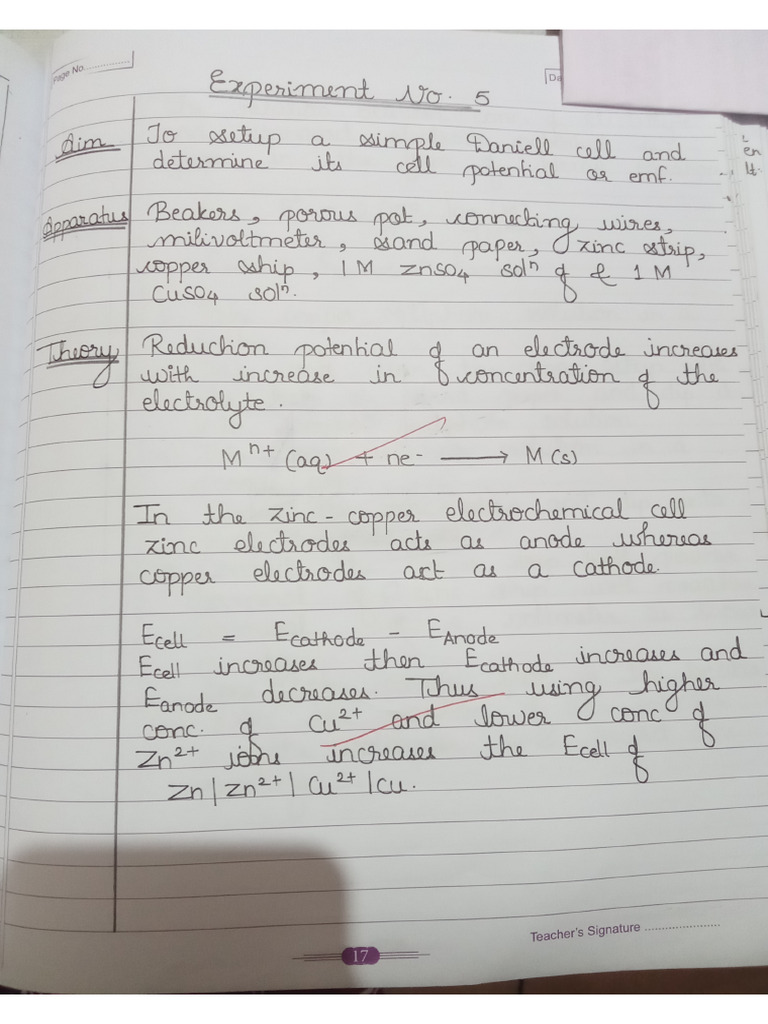 Page No.
Experiment No. 5
Aim To setup a simple Daniell cell and
determine its cell potential or emf.
Apparatus Beakers, porous pot, connecting wires,
milivoltmeter, sand paper, zinc strip,
copper ship, 1 M ZnSO4 solⁿ of & 1 M
CuSO4 solⁿ.
Theory Reduchion potenhial of an electrode increases
with increase in concentration of the
electrolyte.
Mⁿ⁺ (aq) + ne⁻ ⟶ M(s)
In the zinc - copper electrochemical cell
zinc electrodes acts as anode whereas
copper electrodes act as a cathode.
Ecell = Ecathode - EAnode
Ecell increases then Ecathode increases and
Eanode decreases. Thus using higher
conc. of Cu²⁺ and lower conc of
Zn²⁺ increases the Ecell of
Zn | Zn²⁺ | Cu²⁺ | Cu.
Teacher's Signature
17